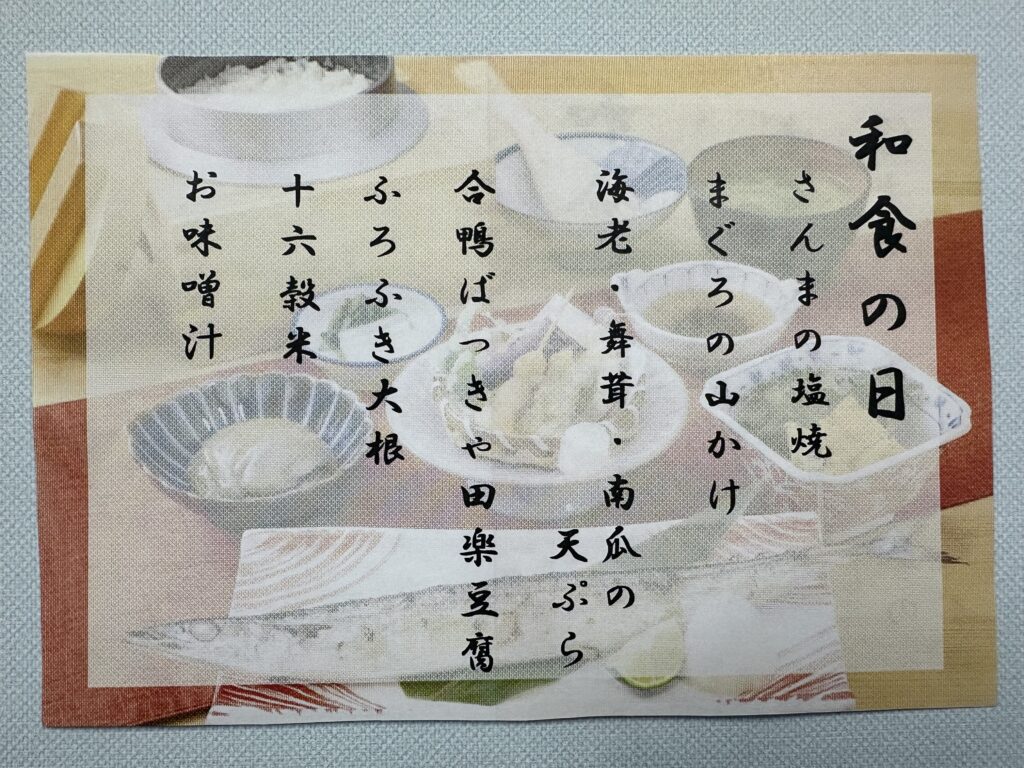 和食の日
さんまの塩焼
まぐろの山かけ
海老・舞茸・南瓜の
天ぷら
合鴨ばつきゃ田楽豆腐
ふろふき大根
十六穀米
お味噌汁